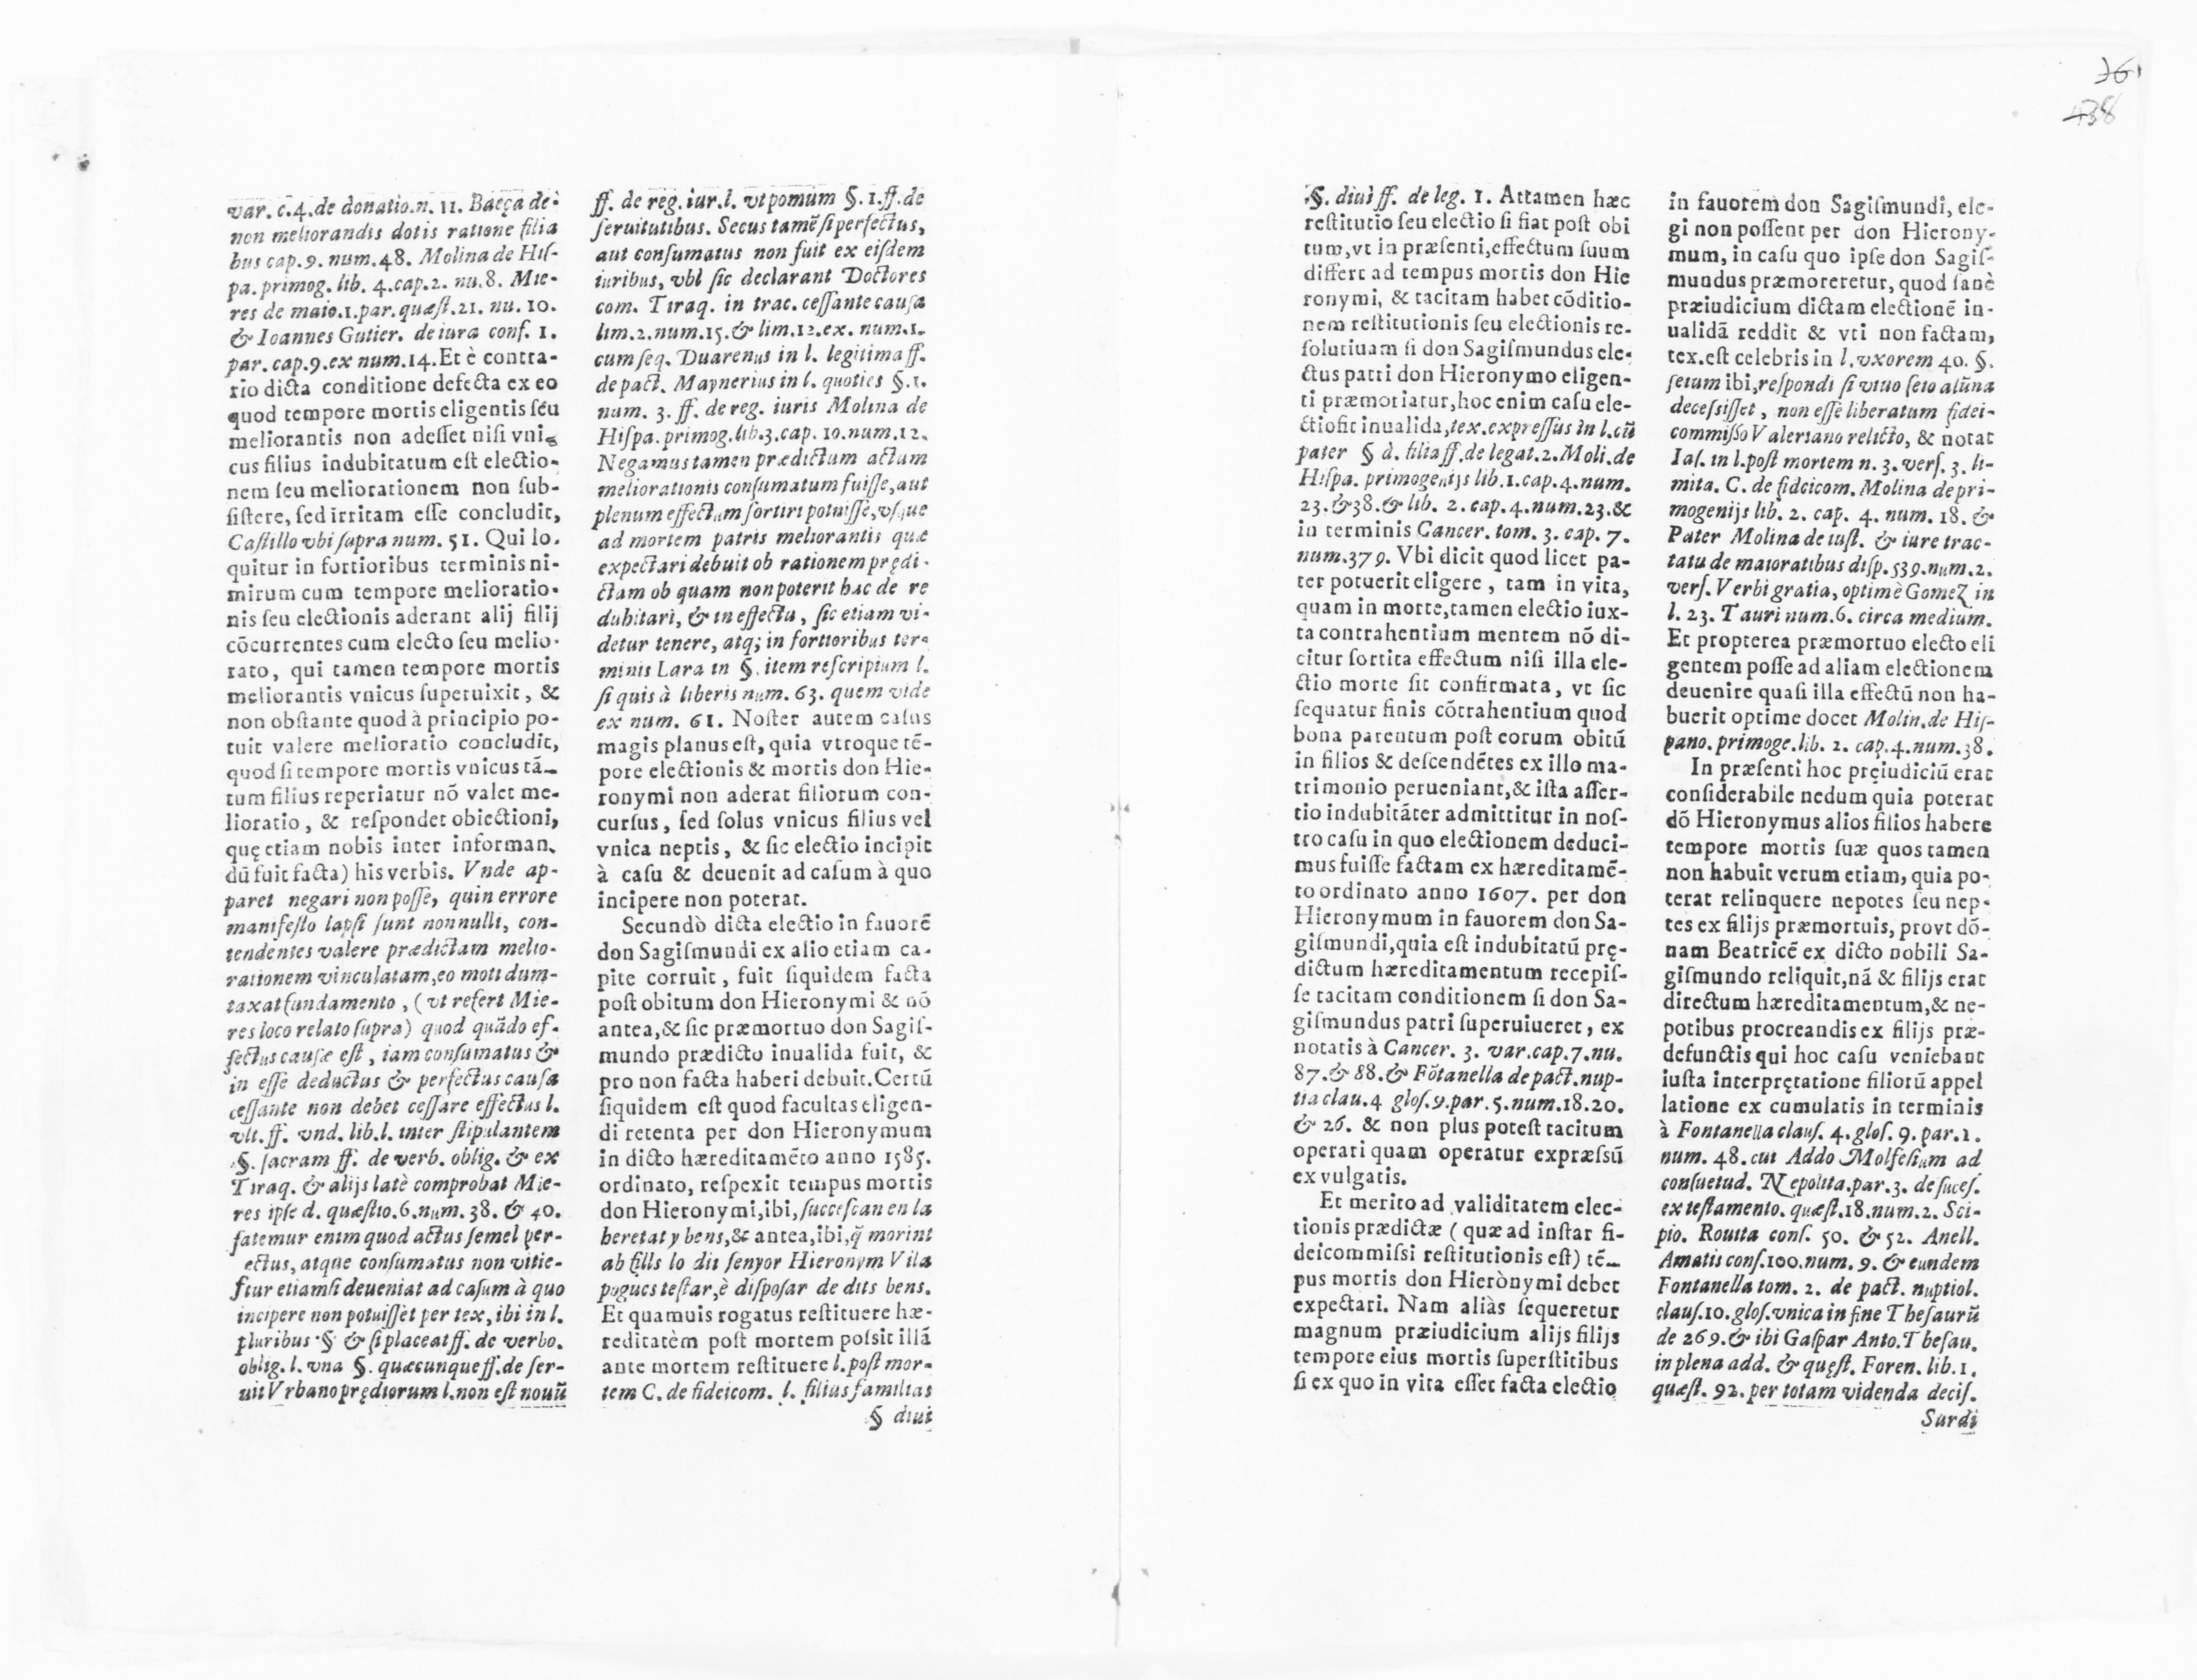 var. c.4.de donatio.n. 11. Baeça de
non meliorandis dotis ratione filia
bus cap.9. num.48. Molina de Hiſ-
pa. primog. lib. 4.cap.2. nu.8. Mie-
res de maio.1.par.quæſt.21. nu. 10.
& Ioannes Gutier. de iura conf. 1.
par. cap.9.ex num.14. Et è contra-
rio dicta conditione defecta ex eo
quod tempore mortis eligentis ſeu
meliorantis non adeſſet niſi vni-
cus filius indubitatum eſt electio-
nem ſeu meliorationem non ſub-
ſiſtere, ſed irritam eſſe concludit,
Caſtillo vbi ſupra num. 51. Qui lo-
quitur in fortioribus terminis ni-
mirum cum tempore melioratio-
nis ſeu electionis aderant alij filij
cõcurrentes cum electo ſeu melio-
rato, qui tamen tempore mortis
meliorantis vnicus ſuperuixit, &
non obſtante quod à principio po-
tuit valere melioratio concludit,
quod ſi tempore mortis vnicus tã-
tum filius reperiatur nõ valet me-
lioratio, & reſpondet obiectioni,
quę etiam nobis inter informan,
dũ fuit facta) his verbis. Vnde ap-
paret negari non poſſe, quin errore
manifeſto lapſi ſunt nonnulli, con-
tendentes valere prædictam melio-
rationem vinculatam,eo moti dum-
taxat fundamento, (vt refert Mie-
res loco relato ſupra) quod quãdo ef-
fectus cauſæ eſt, iam conſumatus &
in eſſe deductus & perfectus cauſa
ceſſante non debet ceſſare effectus l.
vlt. ff. vnd. lib.l. inter ſtipulantem
.§. ſacram ff. de verb. oblig. & ex
Tiraq. & alijs latè comprobat Mie-
res ipſe d. quæſtio.6.num. 38. & 40.
fatemur enim quod actus ſemel per-
ectus, atque conſumatus non vitie-
ftur etiamſi deueniat ad caſum à quo
incipere non potuiſſet per tex, ibi in l.
pluribus .§ & ſi placeat ff. de verbo.
oblig. l. vna §. quæcunque ff. de ſer-
uit Vrbano prędiorum l.non eſt nouũ
ff. de reg. iur.l. vt pomum §.1.ff.de
ſeruitutibus. Secus tamẽ ſi perfectus,
aut conſumatus non fuit ex eiſdem
iuribus, vbl ſic declarant Doctores
com. Tiraq. in trac. ceſſante cauſa
lim.2.num.15.& lim.12.ex. num.1.
cum ſeq. Duarenus in l. legitima ff.
de pact. Maynerius in l. quoties §.1.
num. 3. ff. de reg. iuris Molina de
Hiſpa. primog.lib.3.cap. 10.num.12.
Negamus tamen prædictum actum
meliorationis conſumatum fuiſſe,aut
plenum effectum ſortiri potuiſſe,vſque
ad mortem patris meliorantis quæ
expectari debuit ob rationem prędi-
ctam ob quam non poterit hac de re
dubitari, & in effectu, ſic etiam vi-
detur tenere, atq; in fortioribus ter-
minis Lara in §. item reſcriptum l.
ſi quis à liberis num. 63. quem vide
ex num. 61. Noſter autem caſus
magis planus eſt, quia vtroque tẽ-
pore electionis & mortis don Hie-
ronymi non aderat filiorum con-
curſus, ſed ſolus vnicus filius vel
vnica neptis, & ſic electio incipit
à caſu & deuenit ad caſum à quo
incipere non poterat.
Secundò dicta electio in fauorẽ
don Sagiſmundi ex alio etiam ca-
pite corruit, fuit ſiquidem facta
poſt obitum don Hieronymi & nõ
antea,& ſic præmortuo don Sagiſ-
mundo prædicto inualida fuit, &
pro non facta haberi debuit. Certũ
ſiquidem eſt quod facultas eligen-
di retenta per don Hieronymum
in dicto hæreditamẽto anno 1585.
ordinato, reſpexit tempus mortis
don Hieronymi,ibi, ſucceſcan en la
heretat y bens,& antea,ibi,q̃ morint
ab fills lo dit ſenyor Hieronym Vila
pogues teſtar,è diſpoſar de dits bens.
Et quamuis rogatus reſtituere hæ-
reditatèm poſt mortem poſsit illã
ante mortem reſtituere l. poſt mor-
tem C. de fideicom. l. filius familias
§ diui
§. diui ff. de leg. 1. Attamen hæc
reſtitutio ſeu electio ſi fiat poſt obi
tum,vt in præſenti,effectum ſuum
differt ad tempus mortis don Hie
ronymi, & tacitam habet cõditio-
nem reſtitutionis ſeu electionis re-
ſolutiuam ſi don Sagiſmundus ele-
ctus patri don Hieronymo eligen-
ti præmotiatur,hoc enim caſu ele-
ctio fit inualida,tex.expreſſus in l.cũ
pater § d. filia ff.de legat.2.Moli.de
Hiſpa. primogenijs lib.1.cap.4.num.
23.&38.& lib. 2. cap.4.num.23.&
in terminis Cancer. tom. 3. cap. 7.
num.379. Vbi dicit quod licet pa-
ter potuerit eligere, tam in vita,
quam in morte,tamen electio iux-
ta contrahentium mentem nõ di-
citur ſortita effectum niſi illa ele-
ctio morte ſit confirmata, vt ſic
ſequatur finis cõtrahentium quod
bona parentum poſt eorum obitũ
in filios & deſcendẽtes ex illo ma-
trimonio perueniant,& iſta aſſer-
tio indubitãter admittitur in noſ-
tro caſu in quo electionem deduci-
mus fuiſſe factam ex hæreditamẽ-
to ordinato anno 1607. per don
Hieronymum in fauorem don Sa-
giſmundi,quia eſt indubitatũ prę-
dictum hæreditamentum recepiſ-
ſe tacitam conditionem ſi don Sa-
giſmundus patri ſuperuiueret, ex
notatis à Cancer. 3. var.cap.7.nu.
87.& 88.& Fõtanella de pact.nup-
tia clau.4 gloſ.9.par.5.num.18.20.
& 26. & non plus poteſt tacitum
operari quam operatur expræſsũ
ex vulgatis.
Et merito ad validitatem elec-
tionis prædictæ ( quæ ad inſtar fi-
deicommiſsi reſtitutionis eſt) tẽ-
pus mortis don Hierònymi debet
expectari. Nam aliàs ſequeretur
magnum præiudicium alijs filijs
tempore eius mortis ſuperſtitibus
ſi ex quo in vita eſſet facta electio
in fauorem don Sagiſmundi, ele-
gi non poſſent per don Hierony-
mum, in caſu quo ipſe don Sagiſ-
mundus præmoreretur, quod ſanè
præiudicium dictam electionẽ in-
ualidã reddit & vti non factam,
tex.eſt celebris in l.vxorem 40. §.
ſetum ibi,reſpondi ſi viuo ſeio alũna
deceſsiſſet, non eſſe liberatum fidei-
commiſſo Valeriano relicto, & notat
Iaſ. in l.poſt mortem n. 3. verſ. 3. li-
mita. C. de fideicom. Molina de pri-
mogenijs lib. 2. cap. 4. num. 18. &
Pater Molina de iuſt. & iure trac-
tatu de maioratibus diſp.539.num.2.
verſ. Verbi gratia, optimè Gomez in
l. 23. Tauri num.6. circa medium.
Et propterea præmortuo electo eli
gentem poſſe ad aliam electionem
deuenire quaſi illa effectũ non ha-
buerit optime docet Molin.de Hiſ-
pano. primoge.lib. 2. cap.4.num.38.
In præſenti hoc pręiudiciũ erat
conſiderabile nedum quia poterat
dõ Hieronymus alios filios habere
tempore mortis ſuæ quos tamen
non habuit verum etiam, quia po-
terat relinquere nepotes ſeu nep-
tes ex filijs præmortuis, provt dõ-
nam Beatricẽ ex dicto nobili Sa-
giſmundo reliquit,nã & filijs erat
directum hæreditamentum,& ne-
potibus procreandis ex filijs præ-
defunctis qui hoc caſu veniebant
iuſta interpretatione filiorũ appel
latione ex cumulatis in terminis
à Fontanella clauſ. 4. gloſ. 9. par.1.
num. 48. cui Addo Molfeſium ad
conſuetud. Nepolita.par.3. de ſuceſ.
ex teſtamento. quæſt.18.num.2. Sci-
pio. Rouita conſ. 50. & 52. Anell.
Amatis conſ.100.num. 9. & eundem
Fontanella tom. 2. de pact. nuptiol.
clauſ.10. gloſ.vnica in fine Theſaurũ
de 269.& ibi Gaſpar Anto.Theſau.
in plena add. & quęſt. Foren. lib.1.
quæſt. 92. per totam videnda deciſ.
Surdi